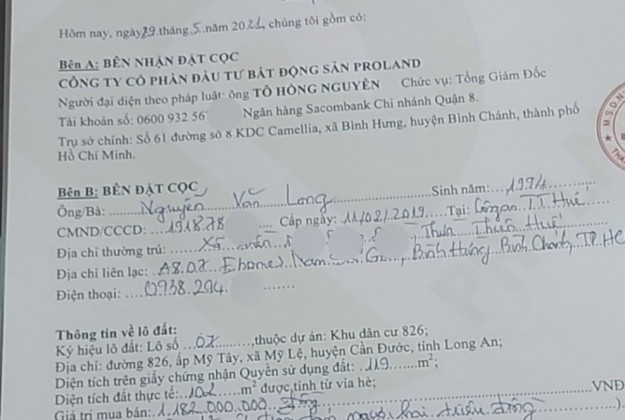 Hôm nay, ngày 29 tháng 5 năm 2021, chúng tôi gồm có:
Bên A: BÊN NHẬN ĐẶT CỌC
CÔNG TY CỔ PHẦN ĐẦU TƯ BẤT ĐỘNG SẢN PROLAND
Người đại diện theo pháp luật: ông TÔ HỒNG NGUYÊN Chức vụ: Tổng Giám Đốc
Tài khoản số: 0600 932 56 Ngân hàng Sacombank Chi nhánh Quận 8.
Trụ sở chính: Số 61 đường số 8 KDC Camellia, xã Bình Hưng, huyện Bình Chánh, thành phố
Hồ Chí Minh.
Bên B: BÊN ĐẶT CỌC
Ông/Bà: Nguyễn Văn Long Sinh năm: 1994
CMND/CCCD: 1918.78 Cấp ngày: 11/02/2019 Tại: Công an T.T Huế
Địa chỉ thường trú: Thừa Thiên Huế
Địa chỉ liên lạc: A8.07 Ehome3 Bình Hưng, Bình Chánh, TP.HC
Điện thoại: 0938.294.
Thông tin về lô đất:
Ký hiệu lô đất: Lô số 07, thuộc dự án: Khu dân cư 826;
Địa chỉ: đường 826, ấp Mỹ Tây, xã Mỹ Lệ, huyện Cần Đước, tỉnh Long An;
Diện tích trên giấy chứng nhận Quyền sử dụng đất: 119 m²;
Diện tích đất thực tế: 102 m² được tính từ vỉa hè;
Giá trị mua bán: 1.182.000.000 đồng VNĐ
mươi hai triệu đồng